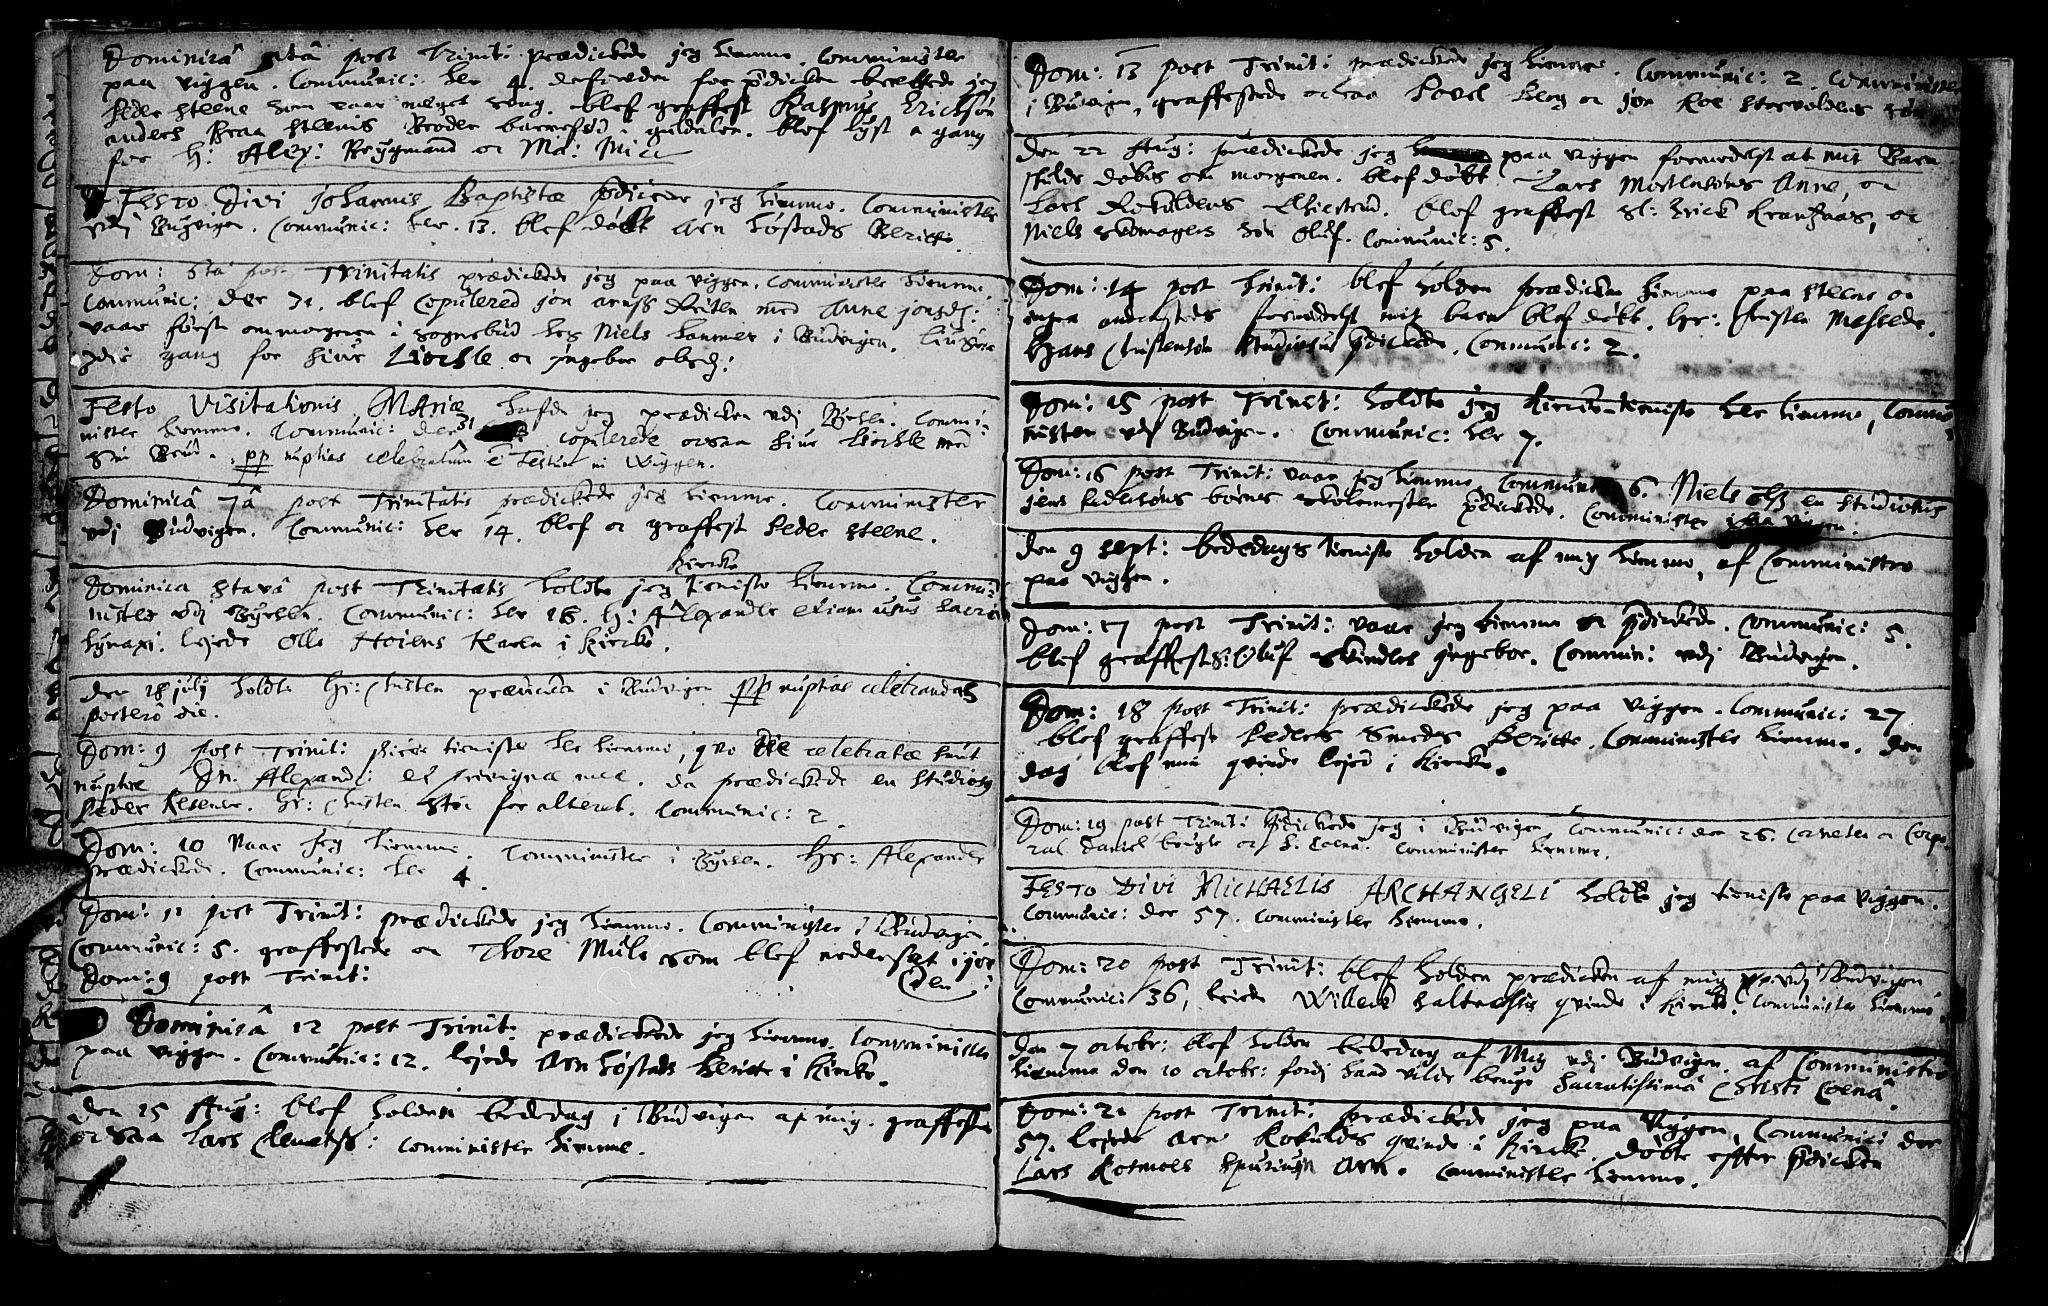 Dominicâ 5tâ post Trinit: prædickede jeg hiemme. Comminister
paa Viggen. Communic: her 4. for prædicken berettede jeg
Peder Steene som vaar meget svag. blef graffest Rasmus Erichsøn
anders Braa Steenis Broder barnefød i guldalen. blef lyst a gang
for H: Alex: Brygmand oc Ma:
Festo Divi Johannis Baptistæ prædicede jeg hiemme. Comminister
vdj Buvigen. Communic: her. 13. blef døbt Arn Søstads Beritte.
Dom: 6ta post Trinitatis prædickede jeg paa Viggen. Comminister hiemme.
Communic: der 71. blef Copulered jon arnss Reiten med Anne jonsd:
vaar først om morgenen i sognebud hos Niels hammer i Budvigen. liusde
3die gang for siur Liocsle oc Ingebor olsd:
Festo Visitationis Mariæ hafde jeg prædicken vdj Byrsen. Commi-
nister hiemme. Communic: der 31 copulerede ocsaa siur Liocsle med
sin Brud. pp nuptias celebratum è festum in Wiggen.
Dominicâ 7â post Trinitatis prædickede jeg hiemme. Comminister
vdj Budvigen. Communic: her 14. blef oc graffest Peder Steene.
Kircke
Dominica 8tavâ post Trinitatis holdte jeg tieniste hiemme. Commi-
nister vdj Byrsen. Communic: her 16. H: Alexander etiam usus sacra
synaxi. lejede Olle Hoiens Karen i Kircke.
den 18 julij holdte Hr: Christen prædicken i Budvigen pp nuptias celebrandas
posterô die.
Dom: 9 post Trinit: kircke tieniste her hiemme, quo die celebratæ sunt
nuptiæ Dn. Alexand: et privignæ meæ. da prædickede en studios9
Peder Resener. Hr: Christen stoe for alteret. Communic: 2.
Dom: 10 Vaar Jeg hiemme. Comminister i Byrsen. Hr: Alexander
prædickede. Communic: her 4.
Dom: 11 post Trinit: prædickede jeg hiemme. Comminister i Budvigen
Communic: 5. graffestede oc Thore Mule som blef nedersat i jor
Dom: 9 post Trinit: den
Dominicâ 12 post Trinit: prædickede jeg hiemme. Comminister
paa Viggen. Communic: 12. lejede Arn Søstads Beritte i Kircke.
den 15 Aug: blef holden bededag i Budvigen af mig. graffeste
ocsaa Lars Clemetss: comminister hiemme.
Dom: 13 post Trinit: prædickede jeg hiemme. Communic: 2. Comminister
i Budvigen, graffestede ocsaa Povel Berg oc jon Roe Storvoldens søn
den 22 Aug: prædickede jeg paa Viggen formedelst at mit Barn
skulde døbis om morgenen. blef døbt Lars Mortensøns Anne, oc
Lars Rokuldens Elsebed. blef graffest sl: Erick Krangaas, oc
Niels skomagers søn Oluf. Communic: 5.
Dom: 14 post Trinit: blef holden prædicken hiemme paa Steene oc
ingen andensteds formedelst mit barn blef døbt. Hr: Christen Messede.
Hans Christensøn studiosus prædickede. Communic: 2.
Dom: 15 post Trinit: holdte jeg Kircke-tieniste her hiemme, Commi-
nister vdj Budvigen. Communic: her 7.
Dom: 16 post Trinit: vaar jeg hiemme. Communic: 6. Niels olss en studiosus
jens Pedersøns børns skolemester prædickede. Comminister paa Viggen.
den 9 Sept: bededags tieniste holden af mig hiemme, af Comministro
paa Viggen.
Dom: 17 post Trinit: vaar jeg hiemme oc prædickede. Communic: 5.
blef graffest S: Oluf Skindlos Ingebor. Commin: vdj Budvigen.
Dom: 18 post Trinit: prædickede jeg paa Viggen. Communic: 27
blef graffest Peders Smeds Beritte. Comminister hiemme. den
dag blef min qvinde lejed i Kircke.
Dom: 19 post Trinit: prædickede jeg i Budvigen Communic: der 26. Corneter oc Corpo-
ral Daniel brugte oc S. Coena. Comminister hiemme.
Festo Divi Michaelis Archangeli holdte jeg tieniste paa Viggen.
Communic: der 57. Comminister hiemme.
Dom: 20 post Trinit: blef holden prædicken af mig vdj Budvigen
Communic: 36, lejede Willeds qvinde i Kircke. Comminister hiemme
den 7 octobr: blef holden bededag af Mig vdj Budvigen. af Comministro
hiemme den 10 octobr: fordj hand vilde bruge Sacratissimâ Christi Coenâ.
Dom: 21 post Trinit: prædickede jeg paa Viggen, Communic: der
57. lejede Arn Rokulds qvinde i Kircke. døbte effter prædicken
Lars Rotmoels spurium Arn. Comminister hiemme.